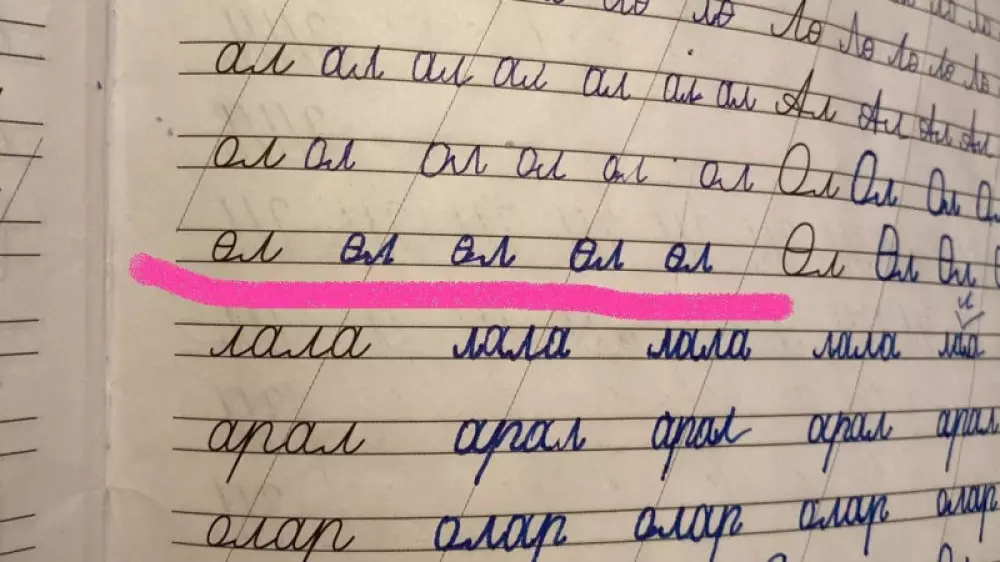 лө лө Лө Лө Лө Лө Лө
ал ал ал ал ал ал ал Ал Ал Ал Ал
ол ол ол ол ол ол Ол Ол Ол
өл өл өл өл өл Өл Өл Өл
лала лала лала лала
арал арал арал арал арал
олар олар олар олар олар